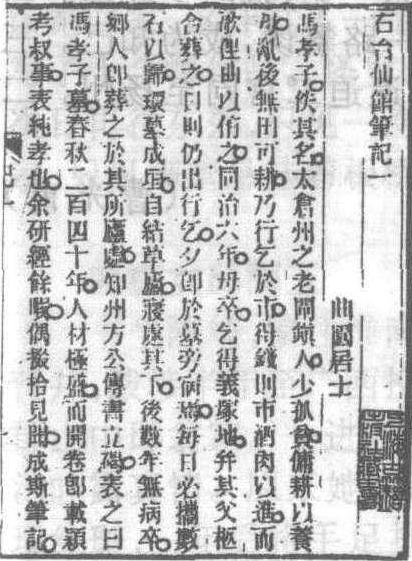 右台仙館筆記一
曲園居士
馮孝子佚其名太倉州之老閘鎮人少孤貧傭耕以養
母亂後無田可耕乃行乞於市得錢則市酒肉以進而
歌俚曲以侑之同治六年母卒乞得義冢地并其父柩
合葬之日則仍出行乞夕卽於墓旁宿焉每日必攜數
石以歸環墓成垣自結草廬寢處其下後數年無病卒
鄉人卽葬之於其所廬處知州方公傳書立碣表之曰
馮孝子墓春秋二百四十年人材極盛而開卷卽載潁
考叔事表純孝也余研經餘暇偶掇拾見聞成斯筆記